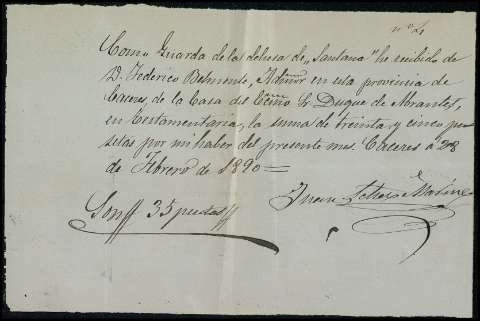 nº 4
Como Guarda de las dehesa de "Santana" he recibido de
D. Federico Belmonte, Admor en esta provincia de
Cáceres, de la Casa del Excmo Sr Duque de Abrantes,
en testamentaria, la suma de treinta y cinco pe
setas por mi haber del presente mes. Cáceres á 28
de Febrero de 1890=
Son # 35 pesetas #
Juan